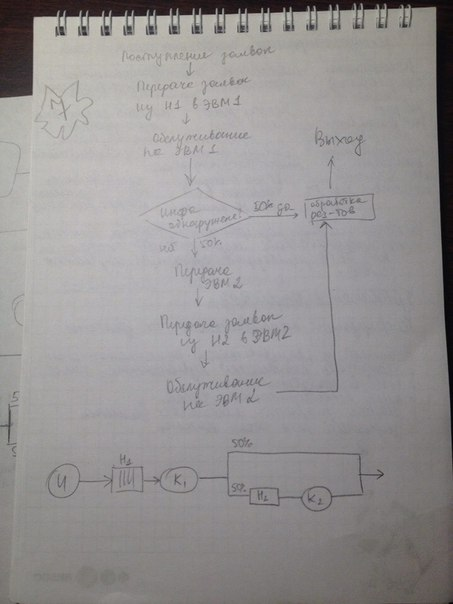 Поступление заявок
Передача заявок
из Н1 в ЭВМ1
Обслуживание
на ЭВМ1
Выход
инфа
обнаружена?
50% да
обработка
рез-тов
нет 50%
Передача
ЭВМ2
Передача заявок
из Н2 в ЭВМ2
Обслуживание
на ЭВМ2
50%
Н1
И
К1
50%
Н2
К2